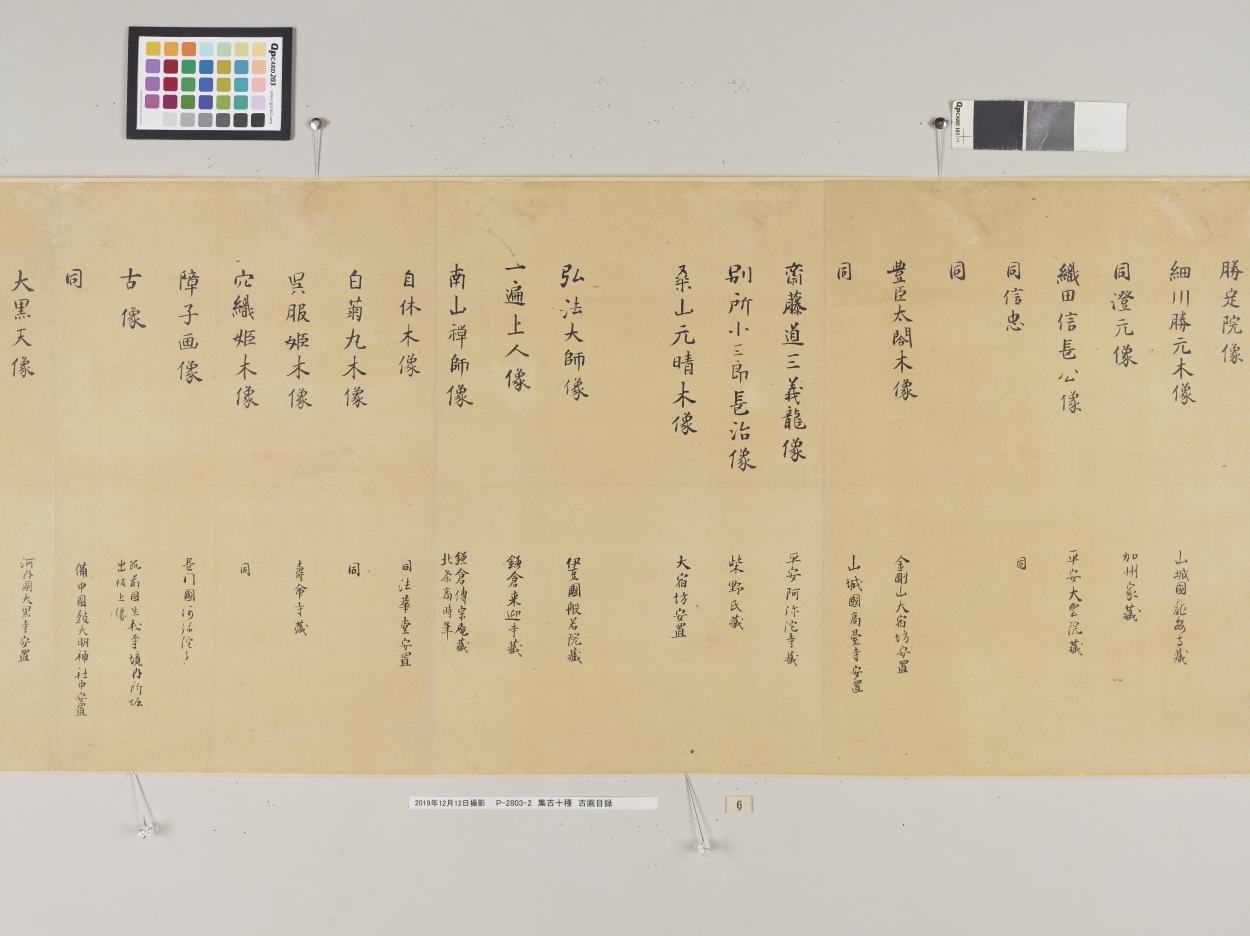 勝定院像
細川勝元木像
山城國龍安寺藏
同澄元像
加州家藏
織田信長公像
平安大雲院藏
同信忠
同
同
豊臣太閤木像
金剛山大宿坊安置
同
山城國高臺寺安置
齋藤道三義龍像
平安阿弥陀寺藏
別所小三郎長治像
柴野氏藏
桑山元晴木像
大宿坊安置
弘法大師像
伊豆國般若院藏
一遍上人像
鎌倉来迎寺藏
南山禅師像
鎌倉傳宗庵藏
北条高時筆
自休木像
同法華堂安置
白菊丸木像
同
呉服姫木像
壽命寺藏
穴織姫木像
同
障子画像
長門國阿弥陀寺
古像
筑前國生松寺境内所堀
出板上像
同
備中國鼓大明神社中安置
大黒天像
河内國大黒寺安置
QPCARD 203
QPCARD 101
2019年12月12日撮影 P-2803-2 集古十種 古画目録
6